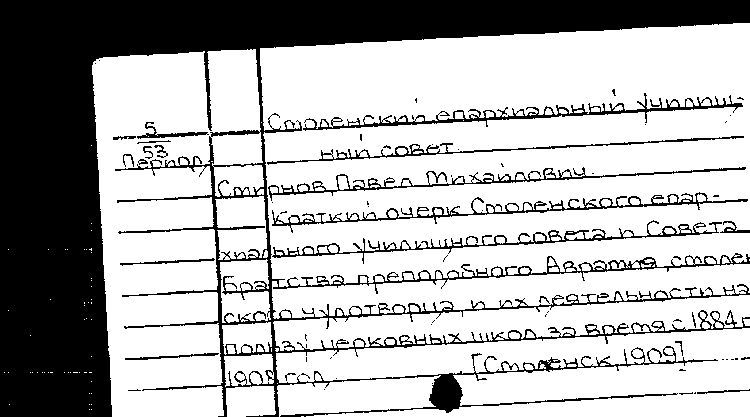 Смоленский епархиальный училищ-
5
53
ный совет.
Период.
Смирнов, Павел Михайлович.
Краткий очерк Смоленского епар-
хиального училищного совета и Совета
Братства преподобного Авратия, смолен
ского чудотворца, и их деятельности на
пользу церковных школ, за время с 1884 г
1908 год
[Смоленск, 1909]